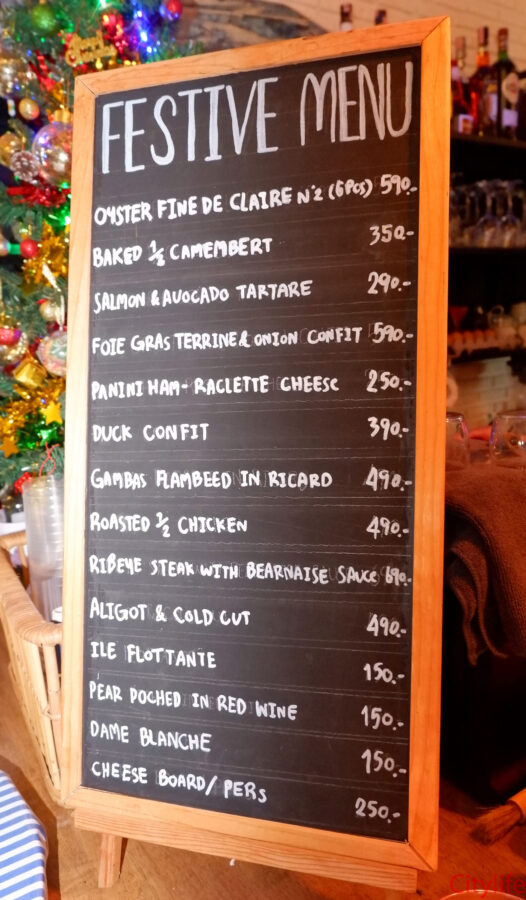 FESTIVE MENU
OYSTER FINE DE CLAIRE N°2 (6PCS) 590.-
BAKED 1/2 CAMEMBERT 350.-
SALMON & AVOCADO TARTARE 290.-
FOIE GRAS TERRINE & ONION CONFIT 590.-
PANINI HAM - RACLETTE CHEESE 250.-
DUCK CONFIT 390.-
GAMBAS FLAMBEED IN RICARD 490.-
ROASTED 1/2 CHICKEN 490.-
RIBEYE STEAK WITH BEARNAISE SAUCE 690.-
ALIGOT & COLD CUT 490.-
ILE FLOTTANTE 150.-
PEAR POCHED IN RED WINE 150.-
DAME BLANCHE 150.-
CHEESE BOARD/PERS 250.-